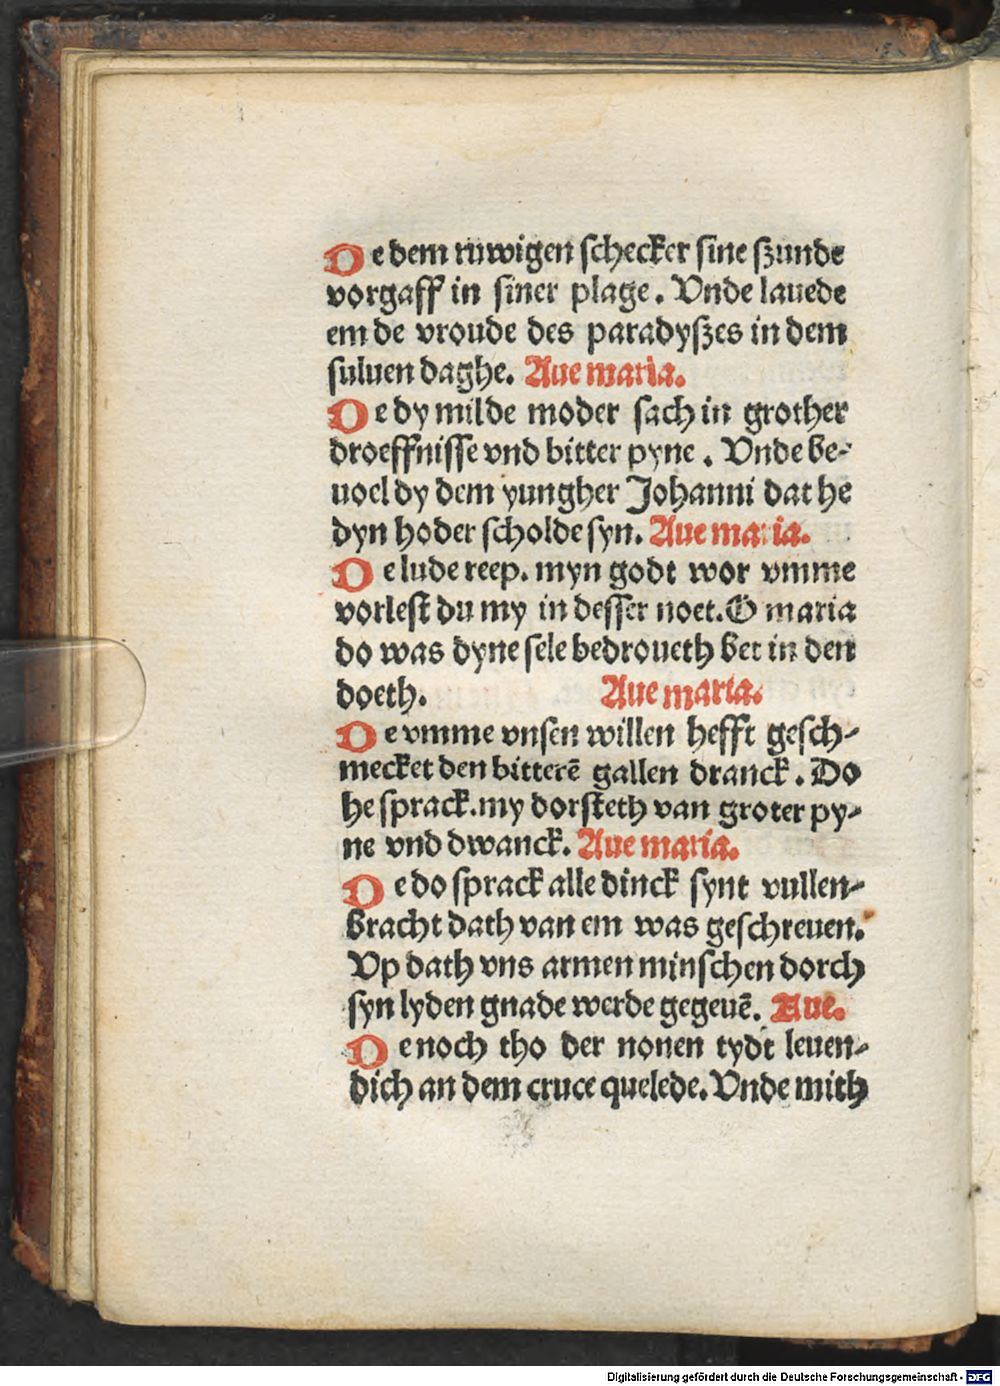 De dem ruwigen schecker sine szunde
vorgaff in siner plage. Vnde lauede
em de vroude des paradyszes in dem
suluen daghe. Aue maria.
De dy milde moder sach in grother
droeffnisse vnd bitter pyne. Vnde be-
uoel dy dem yungher Johanni dat he
dyn hoder scholde syn. Aue maria.
De lude reep. myn godt wor vmme
vorlest du my in desser noet. O maria
do was dyne sele bedroueth bet in den
doeth. Aue maria.
De vmme vnsen willen hefft gesch-
mecket den bitterē gallen dranck. Do
he sprack. my dorsteth van groter py-
ne vnd dwanck. Aue maria.
De do sprack alle dinck synt vullen-
bracht dath van em was geschreuen.
Vp dath vns armen minschen dorch
syn lyden gnade werde gegeuē. Aue.
De noch tho der nonen tydt leuen-
dich an dem cruce quelede. Vnde mith
Digitalisierung gefördert durch die Deutsche Forschungsgemeinschaft - DFG